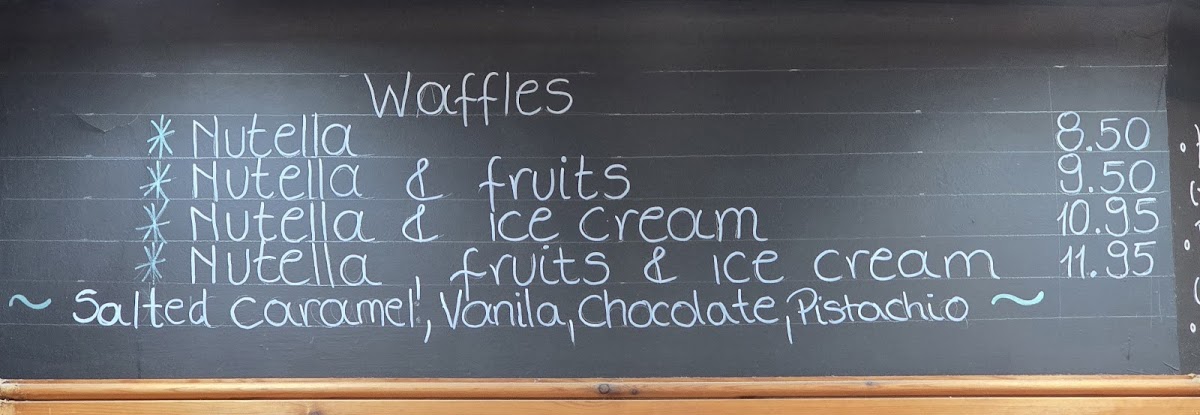 Waffles
* Nutella 8.50
* Nutella & fruits 9.50
* Nutella & ice cream 10.95
* Nutella, fruits & ice cream 11.95
~ Salted caramel!, Vanila, Chocolate, Pistachio ~